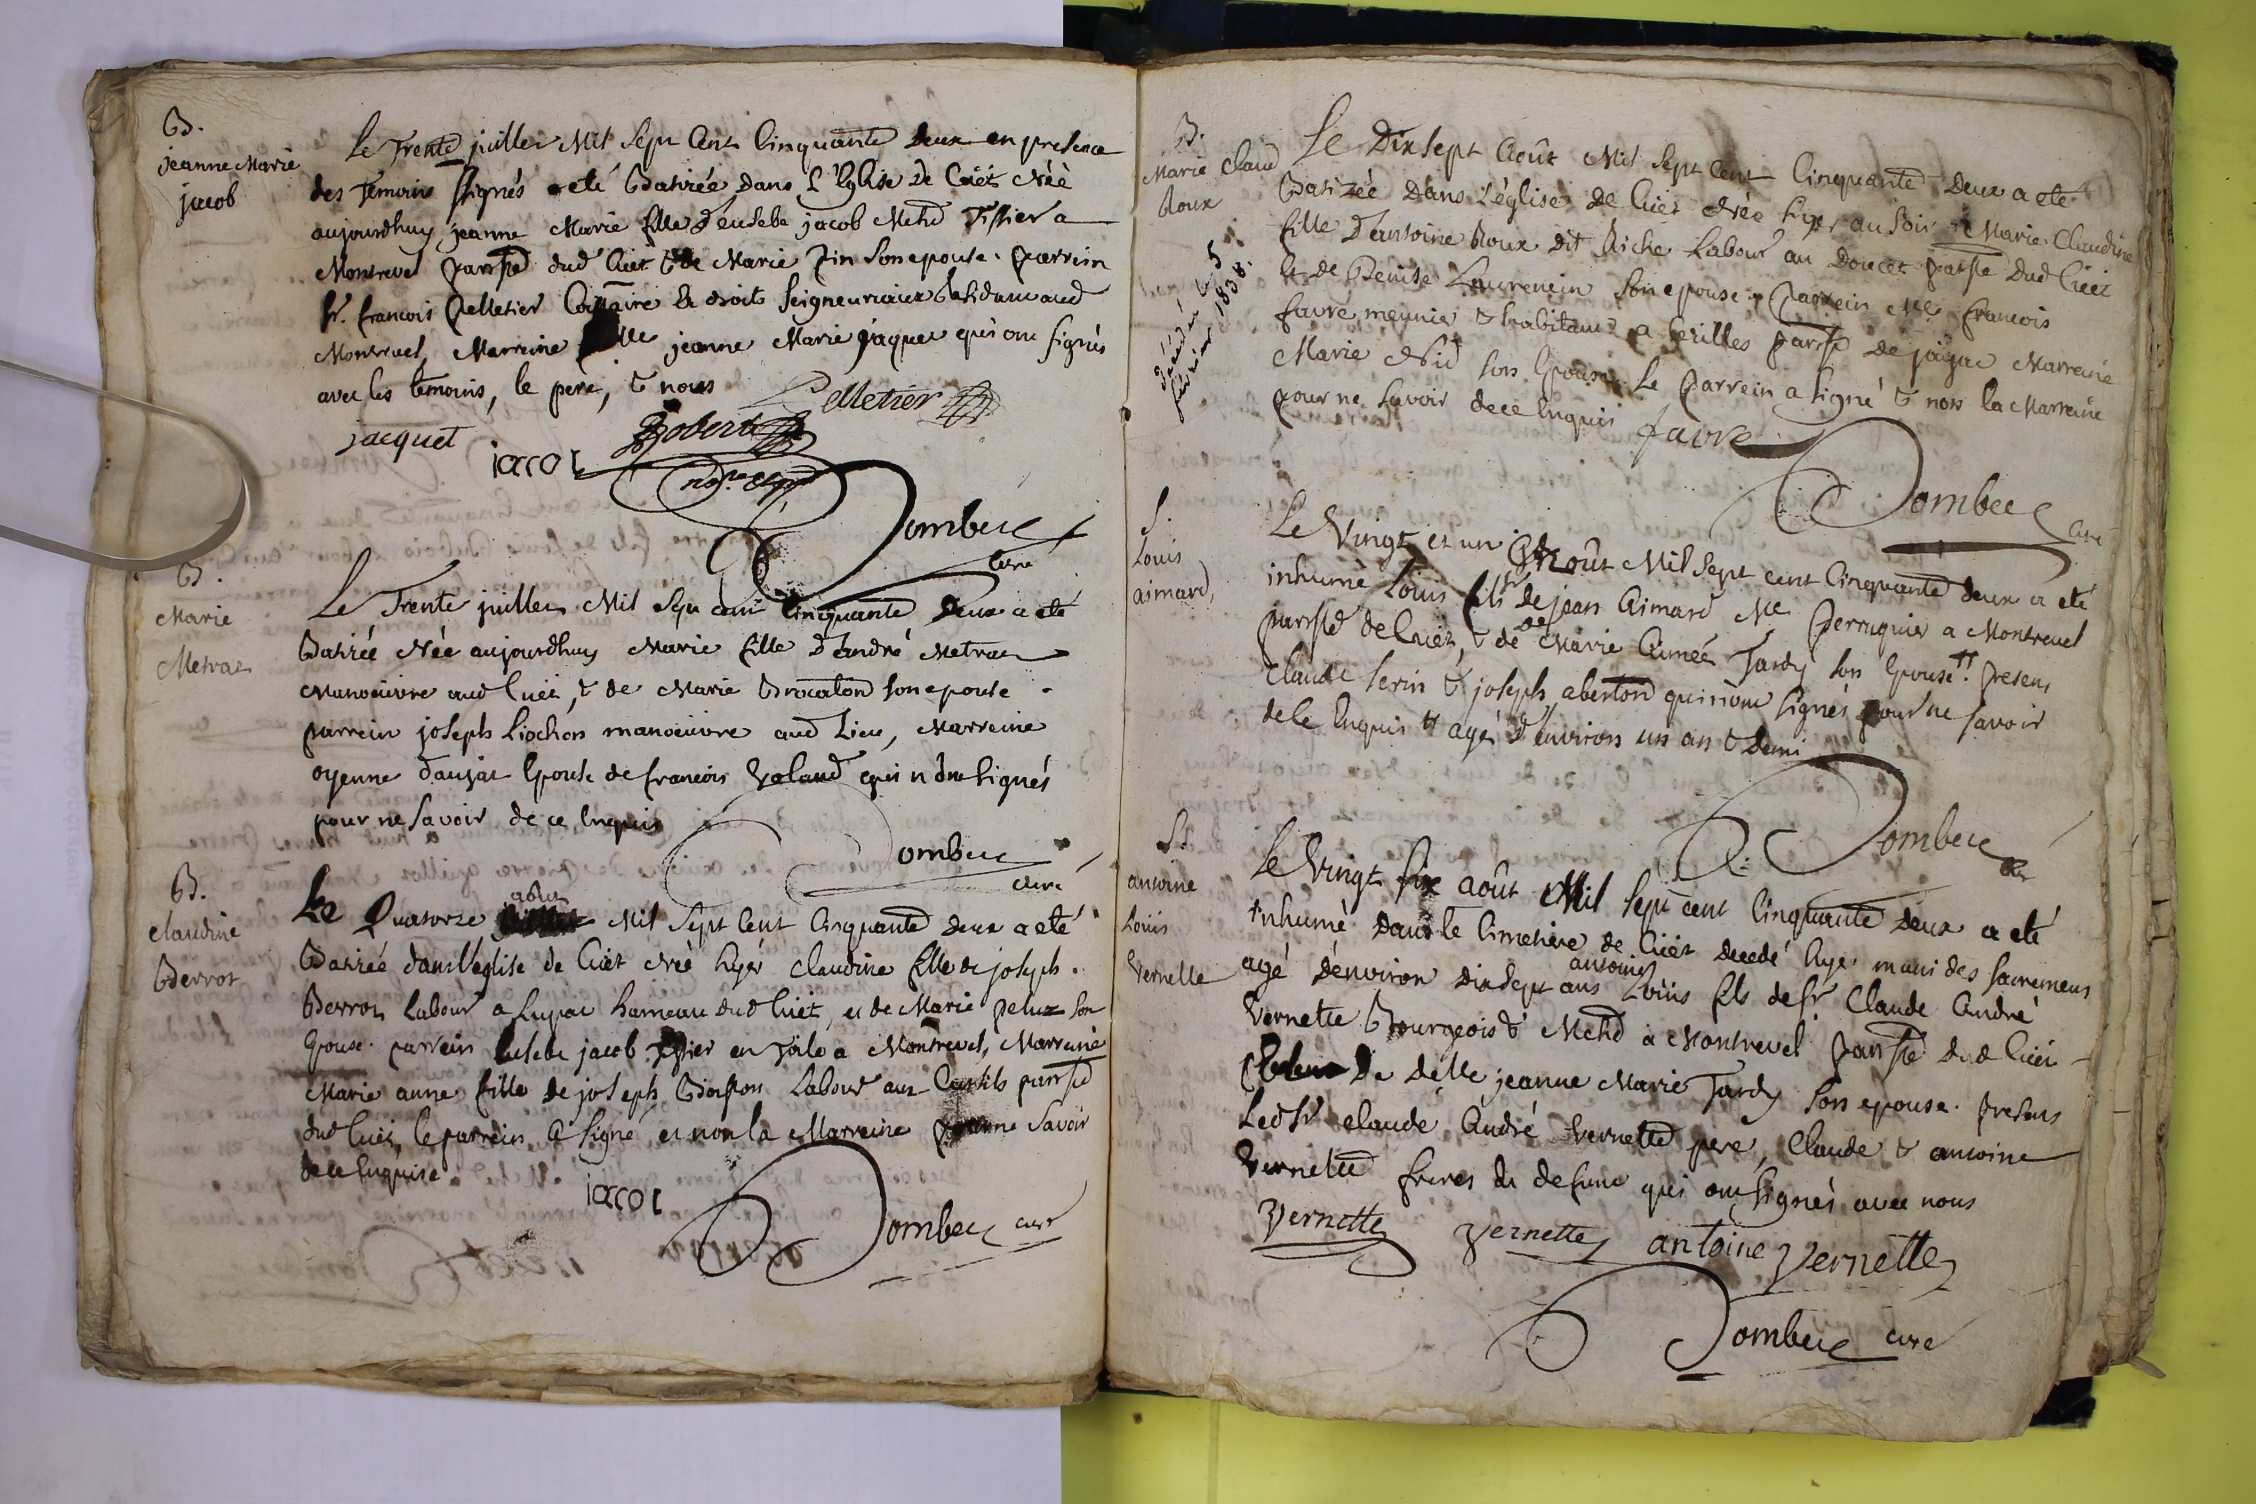 B.
jeanne Marie
jacob
Le Trente juillet Mil Sept Cent Cinquante deux en presence
des Temoins signés a eté Batisée dans l'Eglise de Cuet Née
aujourdhuy jeanne Marie fille d'eusebe jacob Mchd Tissier a
Montrevel parsse dud Cuet & de Marie pin son epouse. parrein
sr. francois pelletier Comre. es droits seigneuriaux Residant aud
Montrevel, Marreine Dlle jeanne Marie jaquet qui ont signés
avec les temoins, le pere, & nous
Pelletier
jacquet
jacob
Robert
Dombec
Curé
B.
Marie
Metraz
Le Trente juillet Mil Sept cent Cinquante Deux a eté
Batisée Née aujourdhuy Marie fille d'andré Metraz
Manoeuvre aud Cuet, & de Marie Brocaton son epouse.
parrein joseph Liochon manoeuvre aud Lieu, Marreine
oyenne daujat Epouse de francois Valand qui n'ont signés
pour ne savoir de ce Enquis
Dombec
Curé
B.
Claudine
Berrot
Le Quatorze
aout
Mil Sept Cent Cinquante deux a eté
Batisée dans l'église de Cuet Née hyer Claudine fille de joseph
Berrot Labour a Luyat hameau dud Cuet, et de Marie peluz son
Epouse. parrein Eusebe jacob Tissier en Toile a Montrevel, Marreine
Marie anne fille de joseph Labour aux parsse
dud Cuet, le parrein a signé et non la Marreine pour ne Savoir
de ce Enquise.
jacob
Dombec curé
B.
Marie Claud
Roux
5
fevrier 1838.
Le Dix Sept Août Mil Sept Cent Cinquante Deux a eté
Batizée Dans l'église de Cuet Née hyer au soir Marie Claudine
fille D'antoine Roux dit Riche Labour au Doucet parsse Dud Cuet
& de Denise Laurencin son epouse. Parrein Me. francois
favre meunier & habitant a Cezilles parsse de jayat Marreine
Marie Nid son Epouse. Le parrein a signé & non la Marreine
pour ne savoir de ce Enquis
favre
Dombec
Curé
S.
Louis
aimard,
Le Vingt et un Août Mil Sept cent Cinquante deux a eté
inhumé Louis fils de sr jean Aimard Me Perruquier a Montrevel
parsse de Cuet, & de De Marie Aimée Tardy son Epouse tt. presens
Claude Serin & joseph aberton qui n'ont signés pour ne savoir
de ce Enquis tt agé d'environ un an & demi
Dombec
Curé
S.
antoine
Louis
Vernette
Le Vingt six août Mil Sept cent Cinquante Deux a eté
inhumé dans le Cimetiere de Cuet decedé hyer muni des sacremens
agé d'environ dix sept ans
antoine
Louis fils de sr. Claude André
Vernette Bourgeois & Mchd a Montrevel parsse dud Cuet
De Delle jeanne Marie Tardy son epouse. presens
Led sr Claude André Vernette pere, Claude & antoine
Vernette freres du defunt qui ont signés avec nous
Vernette
Vernette
antoine Vernette
Dombec curé